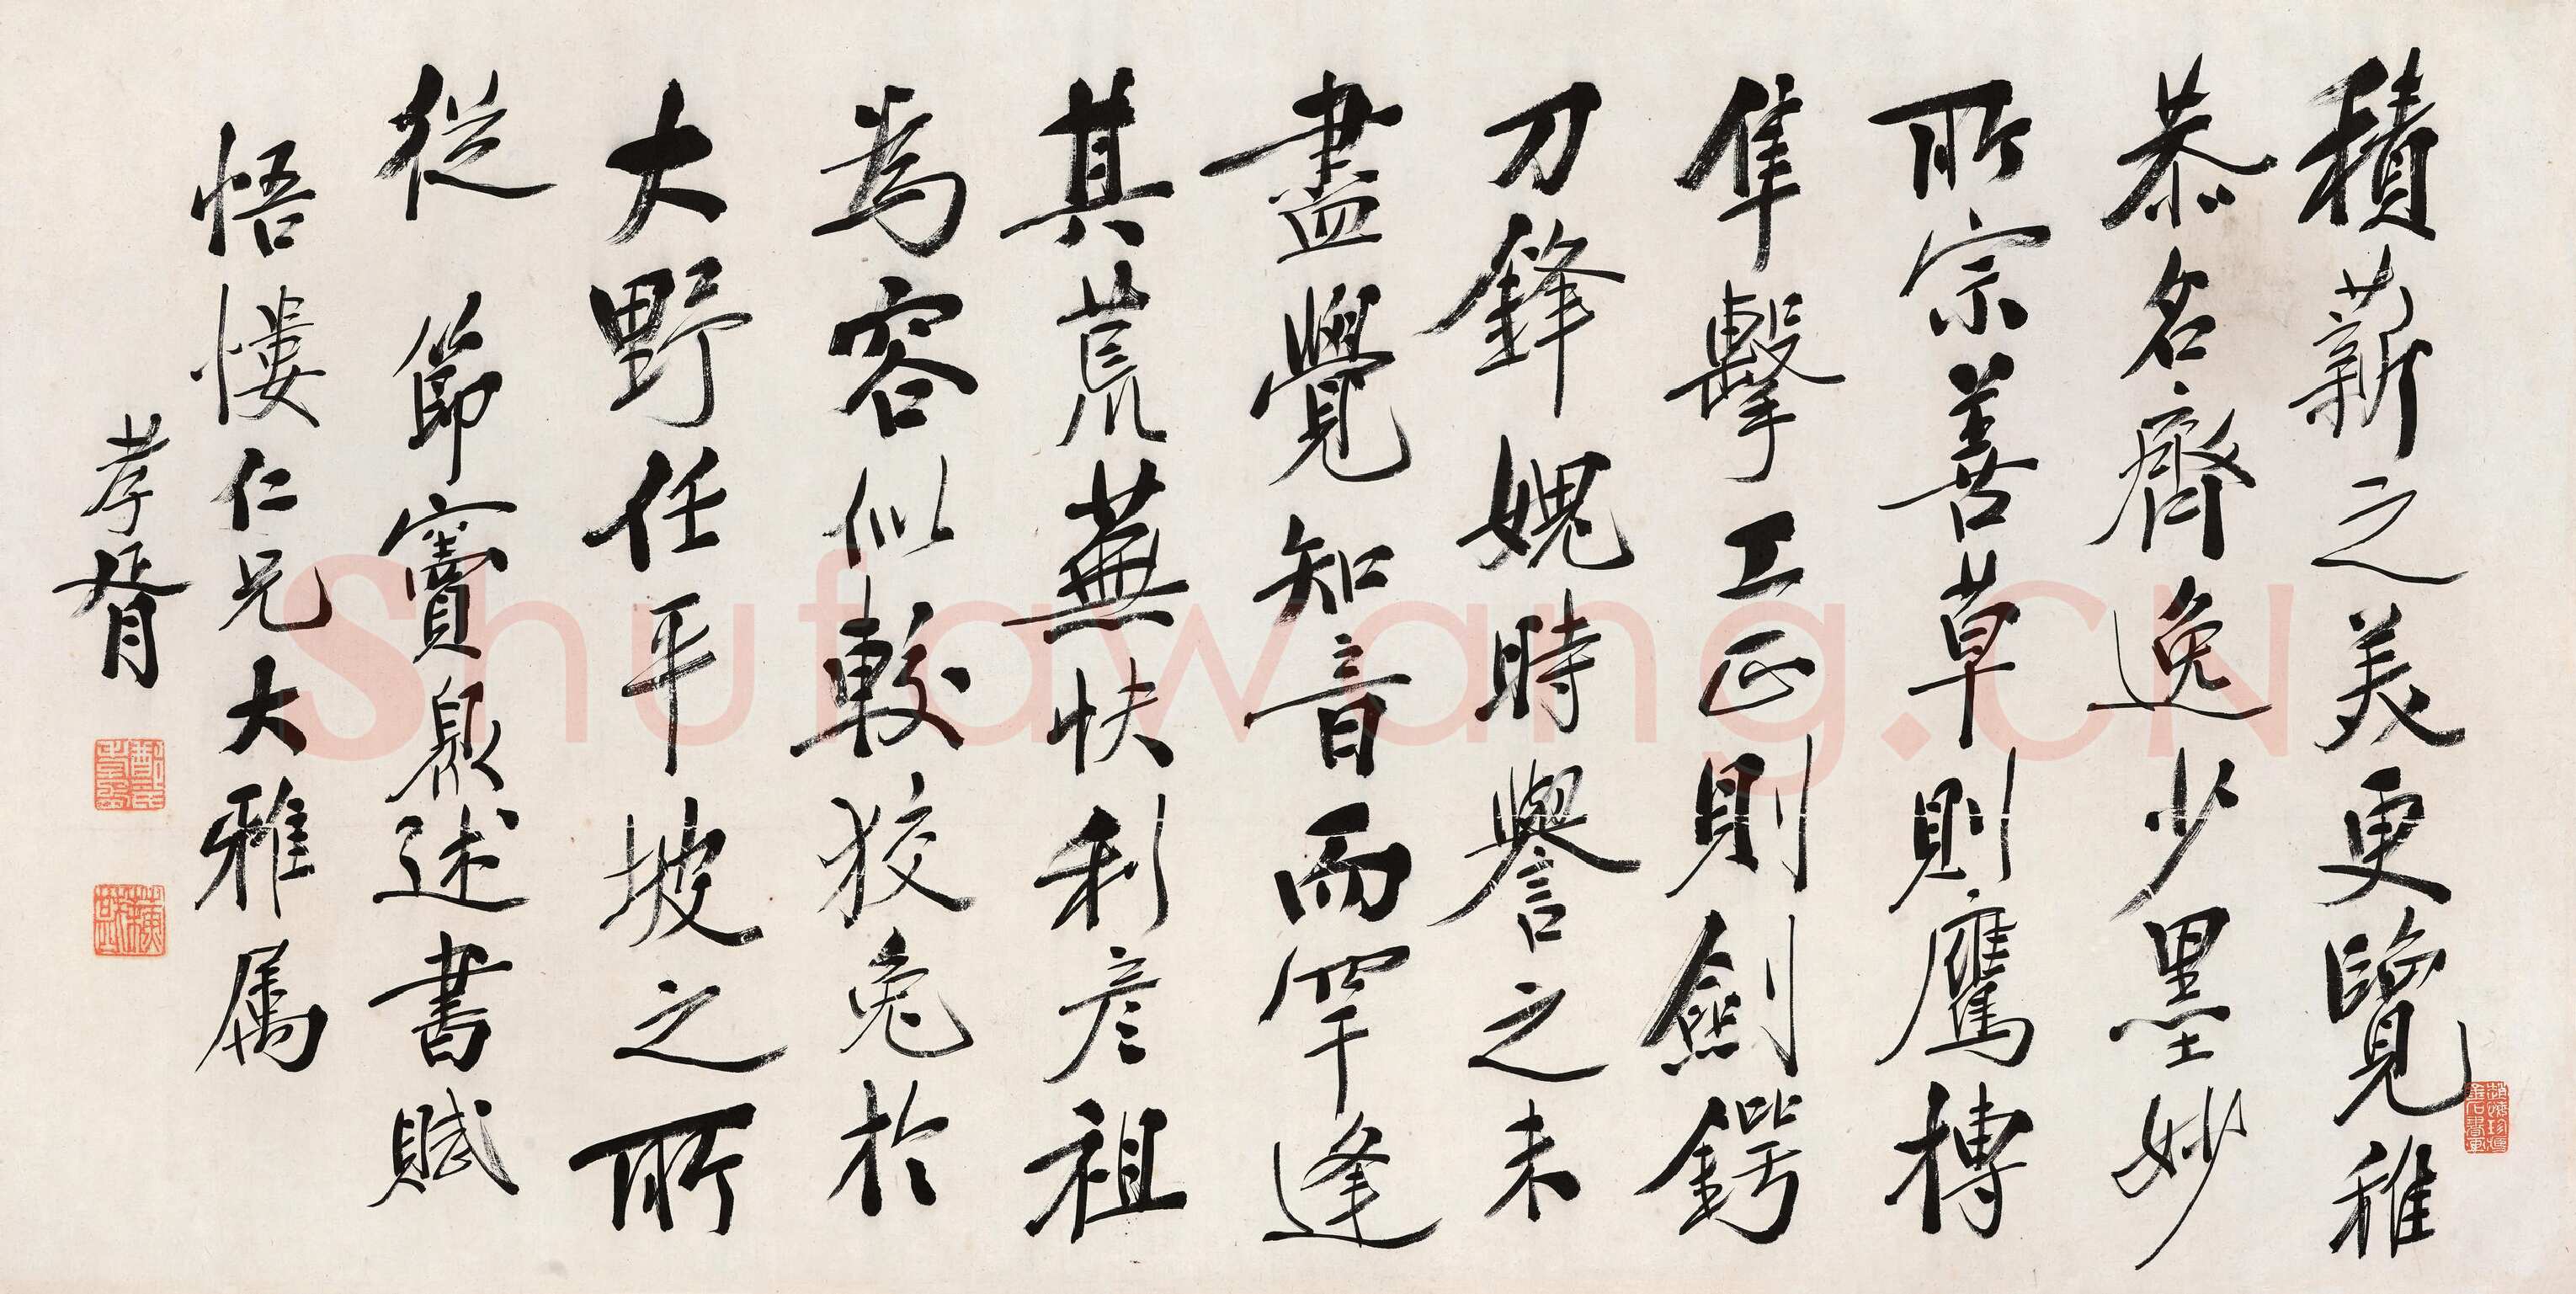 積薪之美更覽稚
恭名齊逸少墨妙
所宗善草則鷹搏
隼擊工正則劍鍔
刀鋒媿時譽之未
盡覺知音而罕逢
其荒蕪快利彥祖
為容似較狡兔於
大野任平坡之所
從 節竇臮述書賦
悟慺仁兄大雅属
孝胥
Shufawang.CN